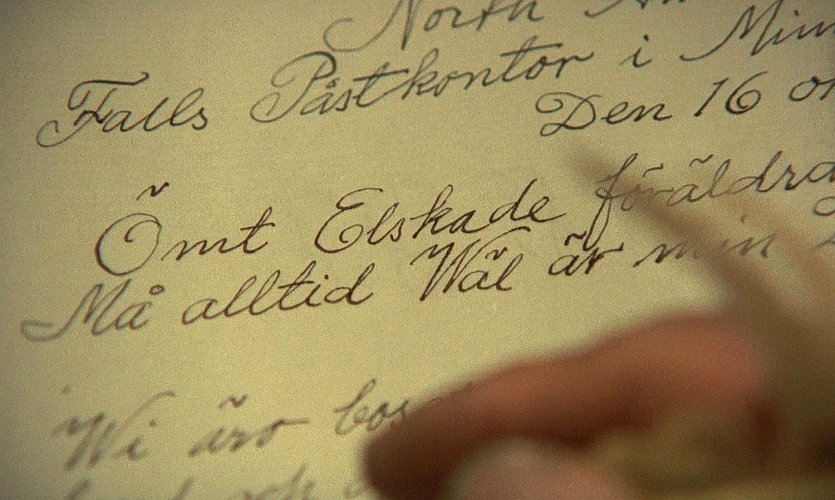 North
Falls Påstkontor i
Den 16
Ömt Elskade föräldra
Må alltid Wäl är min
Wi äro
och